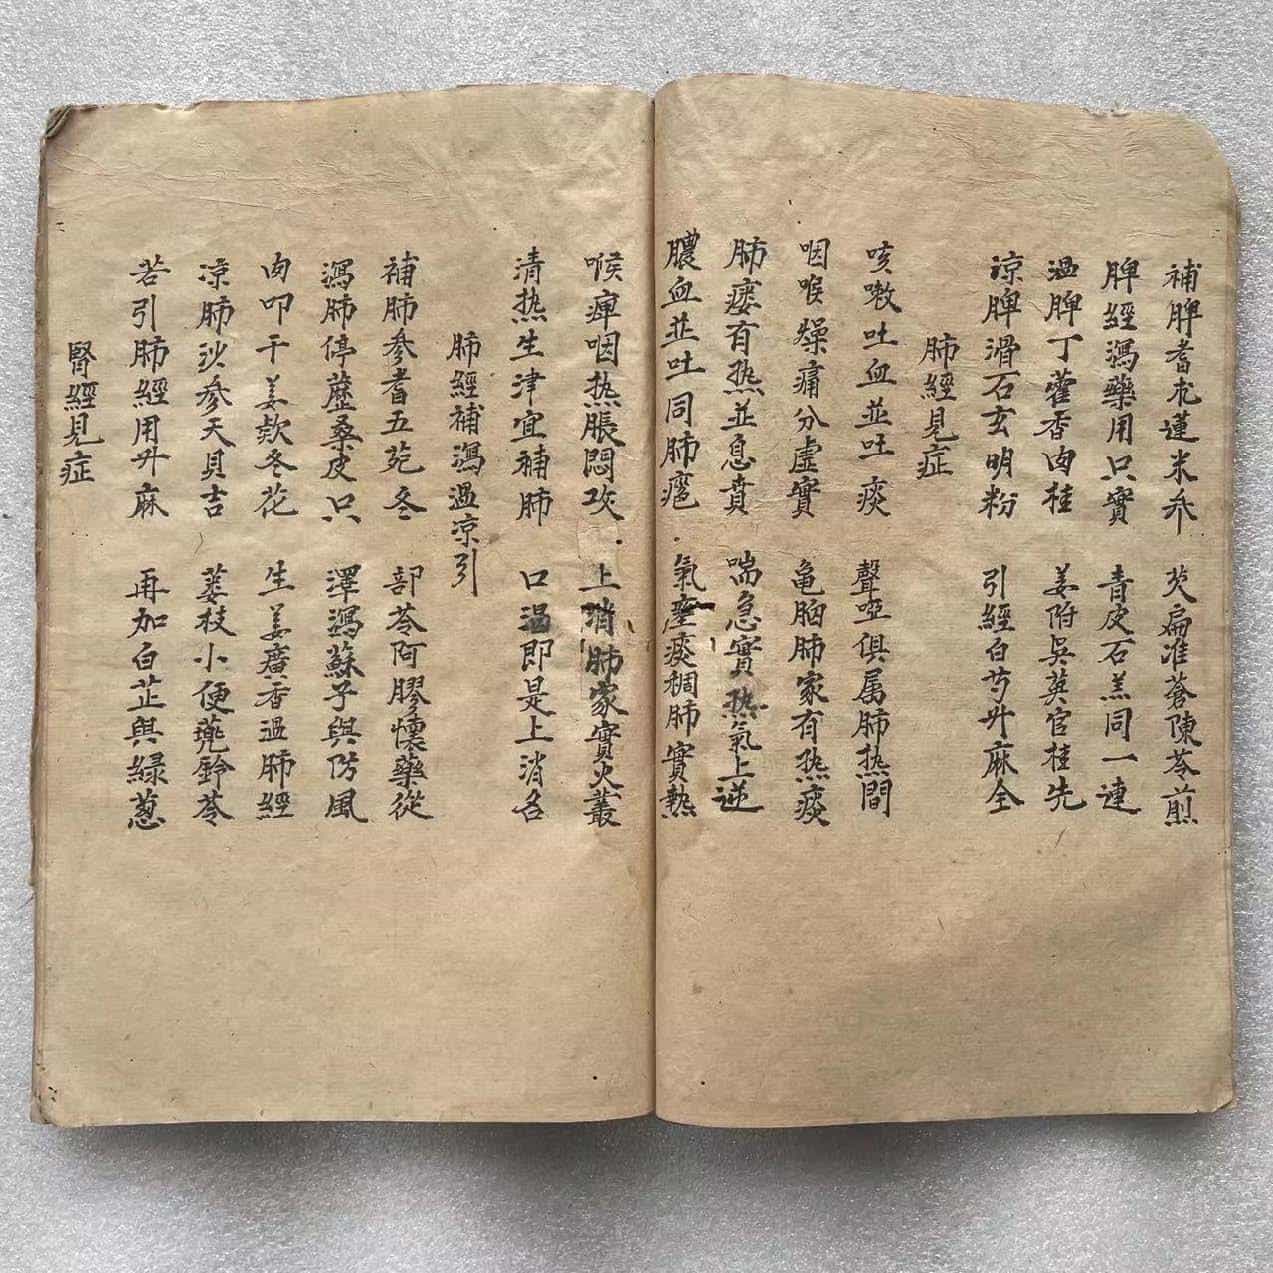 補脾耆朮蓮米參　芡扁淮蒼陳苓煎
脾經瀉藥用只實　青皮石羔同一連
温脾丁藿香肉桂　姜附吳萸官桂先
凉脾滑石玄明粉　引經白芍升麻全
肺經見症
咳嗽吐血並吐痰　聲啞俱属肺热間
咽喉燥痛分虚實　龟胸肺家有热痰
肺痿有热並息賁　喘急實热氣上逆
膿血並吐同肺癰　氣壅痰稠肺實熱
喉痺咽热脹悶攻　上消肺家實火叢
清热生津宜補肺　口渴即是上消名
肺經補瀉温凉引
補肺參耆五苑冬　部苓阿膠懷藥從
瀉肺停藶桑皮只　澤瀉蘇子與防風
肉叩干姜欵冬花　生姜廣香温肺經
凉肺沙參天貝吉　蒌枝小便兠鈴苓
若引肺經用升麻　再加白芷與緑葱
腎經見症